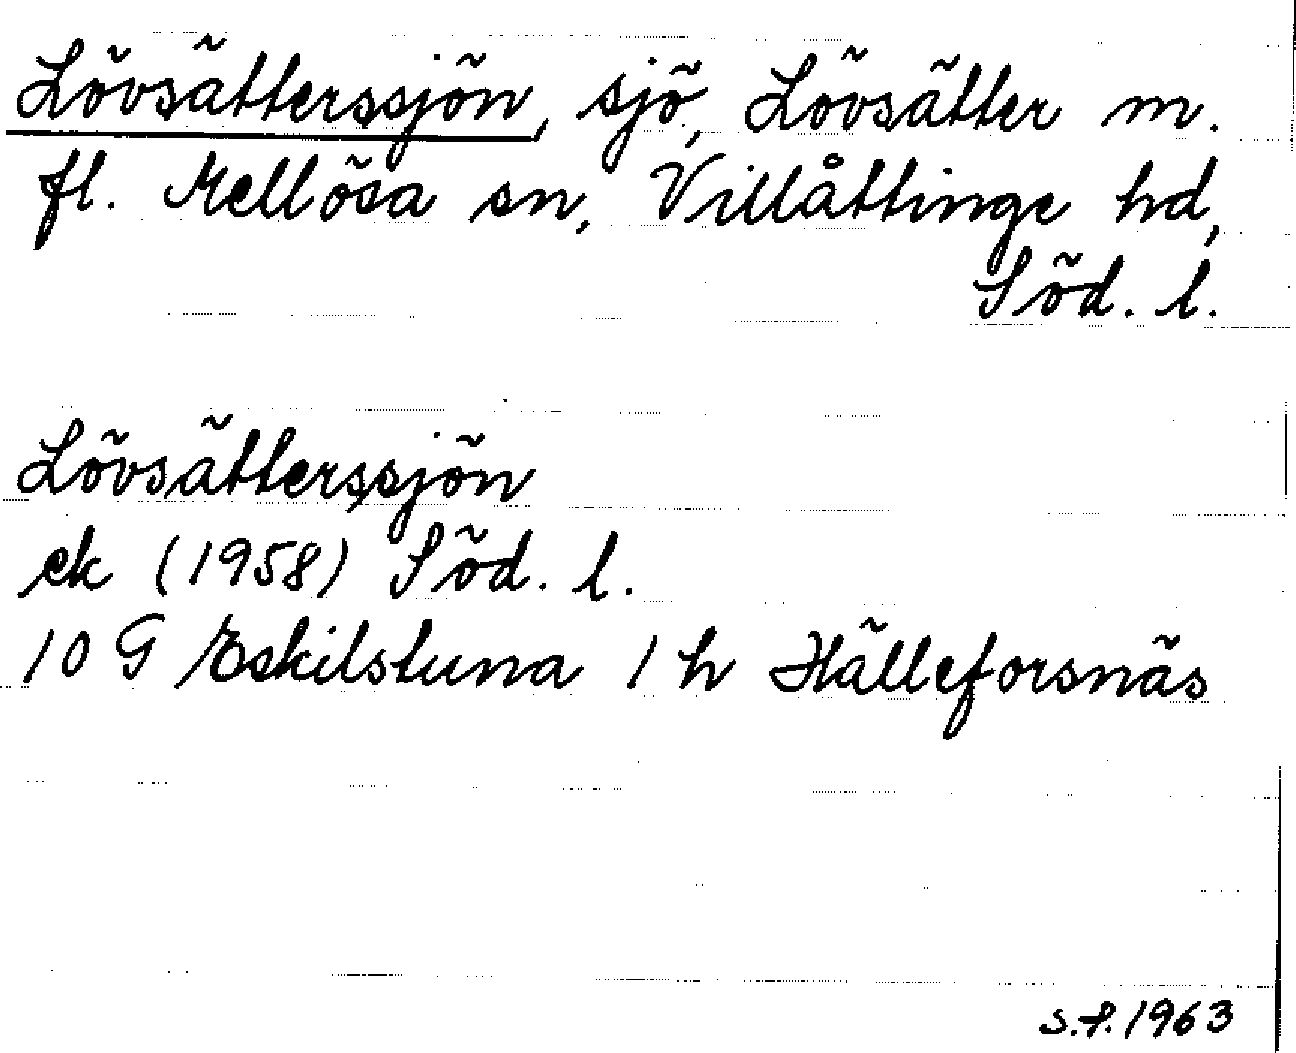 Lövsätterssjön, sjö, Lövsätter m.
fl. Mellösa sn, Villåttinge hd,
Söd. l.
Lövsätterssjön
ek (1958) Söd. l.
10 G Eskilstuna 1 h Hälleforsnäs
s.f. 1963